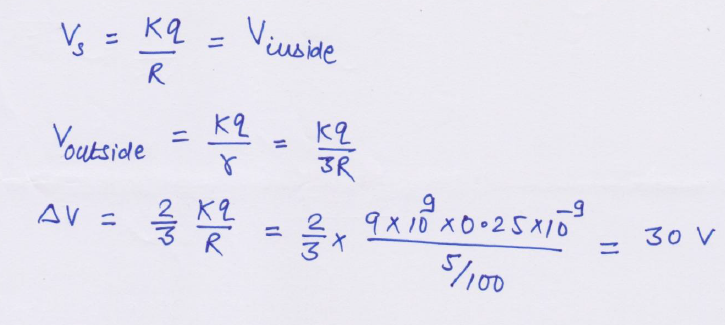 V_s = Kq/R = V_inside
V_outside = Kq/r = Kq/3R
ΔV = 2/3 Kq/R = 2/3 × (9×10^9 ×0.25×10^-9)/(5/100) = 30 V